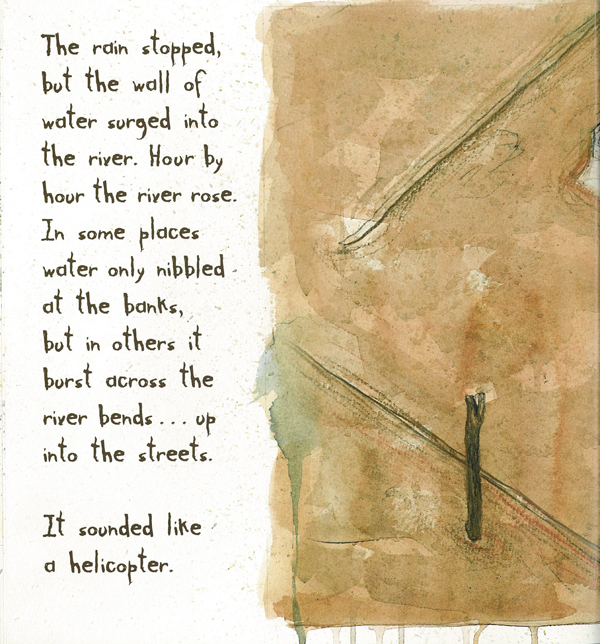 The rain stopped,
but the wall of
water surged into
the river. Hour by
hour the river rose.
In some places
water only nibbled
at the banks,
but in others it
burst across the
river bends... up
into the streets.
It sounded like
a helicopter.